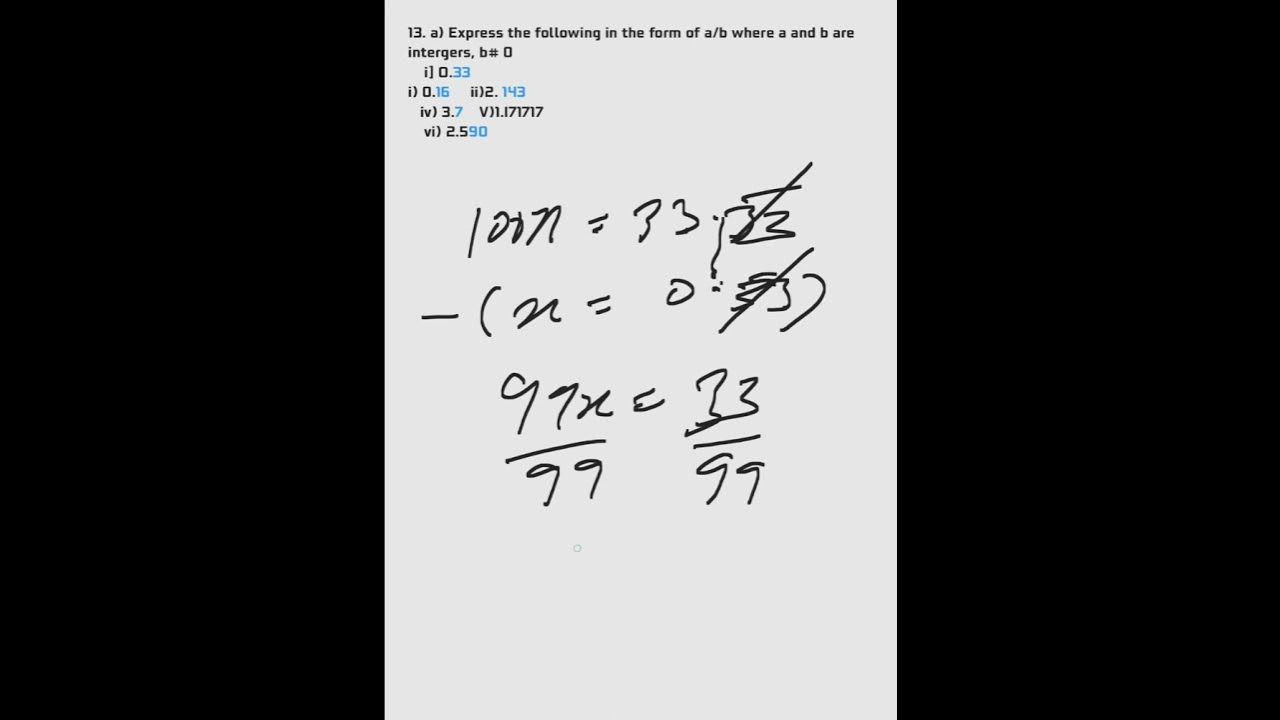 13. a) Express the following in the form of a/b where a and b are
intergers, b# 0
i] 0.33
i) 0.16 ii)2. 143
iv) 3.7 V)1.171717
vi) 2.590
100x = 33.33
- (x = 0.33)
99x = 33
99 99